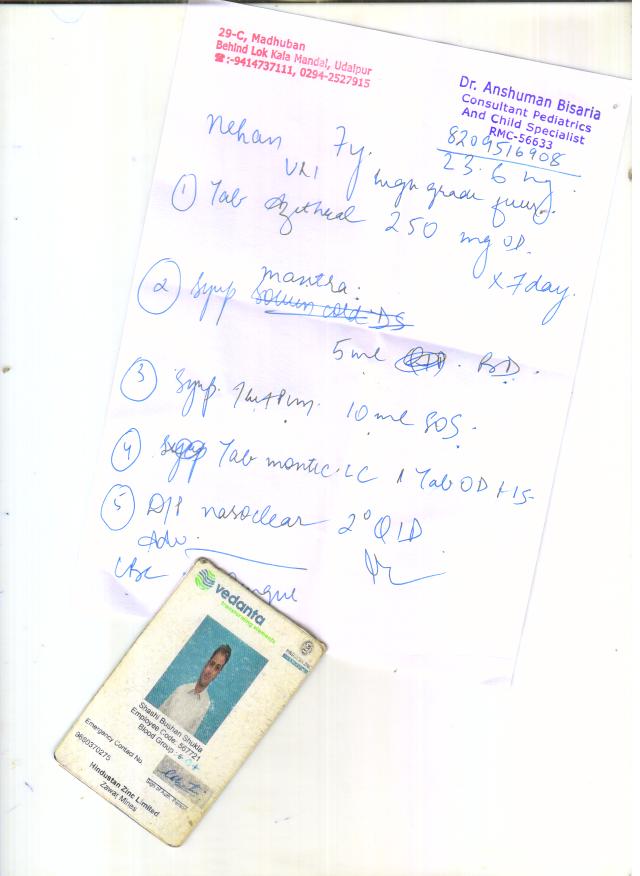 29-C, Madhuban
Behind Lok Kala Mandal, Udaipur
☎:-9414737111, 0294-2527915
Dr. Anshuman Bisaria
Consultant Pediatrics
And Child Specialist
RMC-56633
8209516908
Nehan 7y. 23.6 kg
URI high grade fever.
① Tab Azithral 250 mg OD.
x 7 day.
② Syrp mantra.
Solvin cold DS
5 ml BD.
③ Syrp. 10 ml SOS.
④ Tab montic-LC 1 Tab OD HS
⑤ D/P nasoclear 2° QID
Adv.
CBC
vedanta
transforming elements
Shashi Bushan Shukla
Employee Code: 567721
Blood Group:
Emergency Contact No.
9680370275
Hindustan Zinc Limited
Zawar Mines